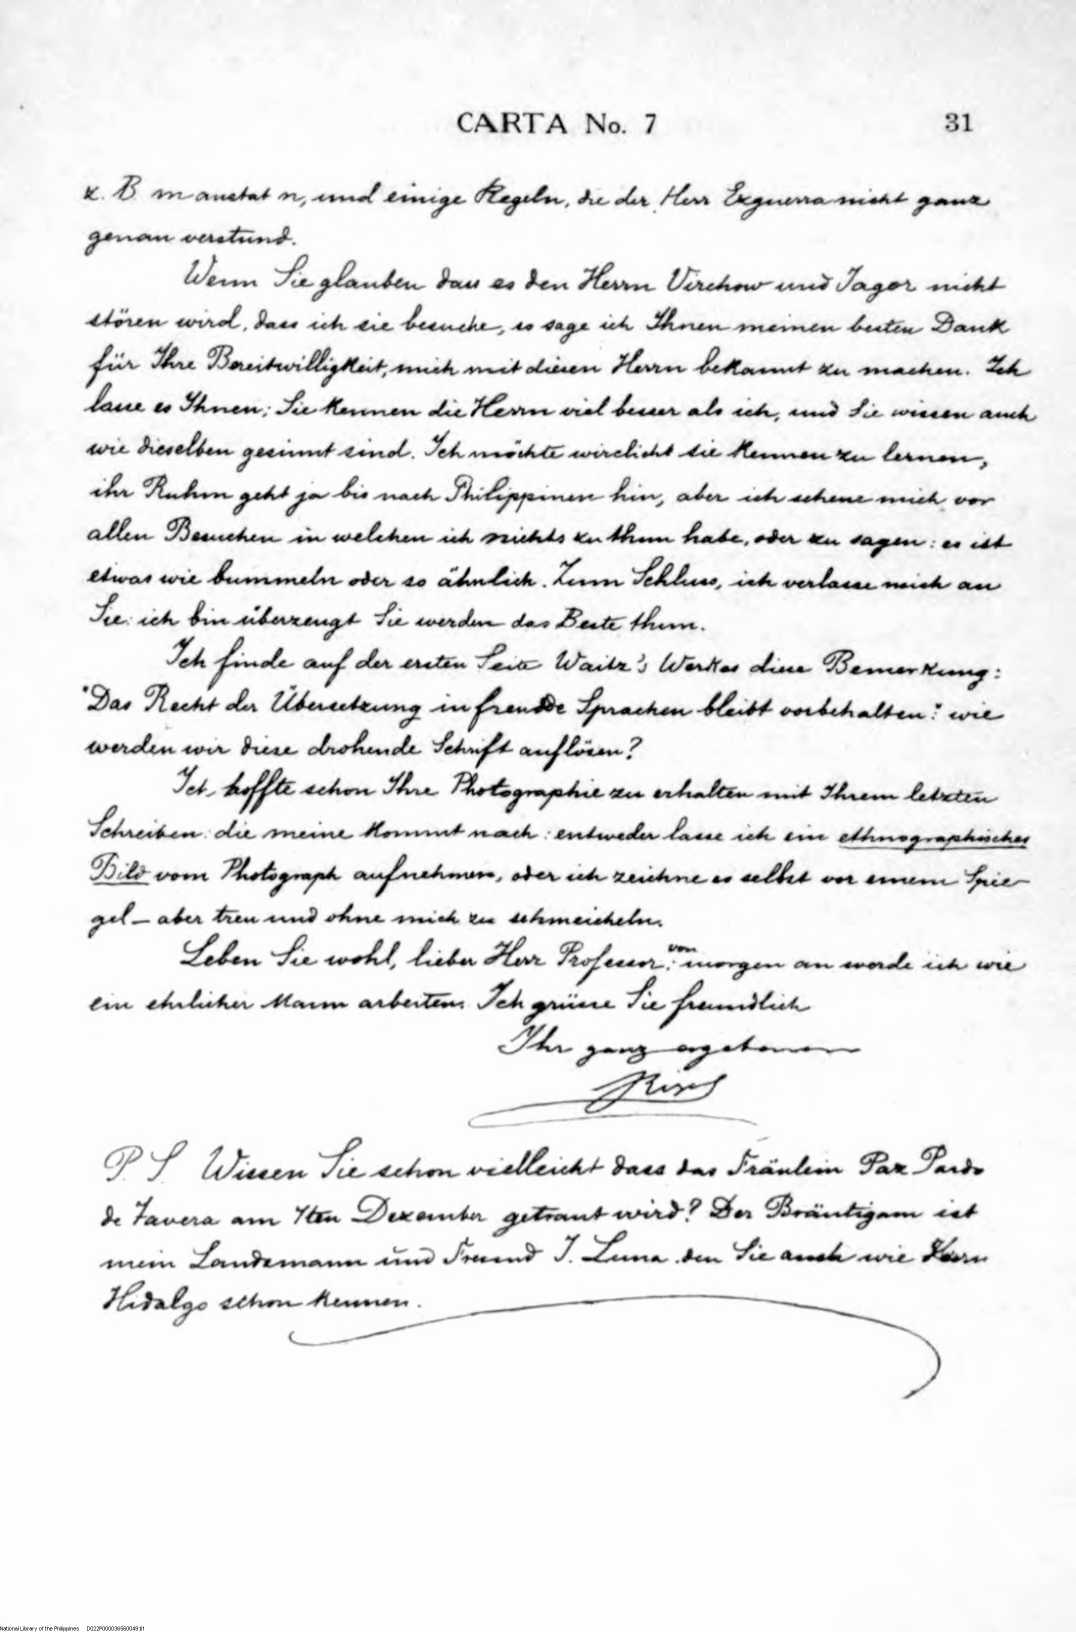 CARTA No. 7 31
z. B m anstat n, und einige Regeln, die der Herr Ezguerra nicht ganz
genau verstund.
Wenn Sie glauben dass es den Herrn Virchow und Jagor nicht
stören wird, dass ich sie besuche, so sage ich Ihnen meinen besten Dank
für Ihre Bereitwilligkeit, mich mit diesen Herrn bekannt zu machen. Ich
lasse es Ihnen; Sie kennen die Herrn viel besser als ich, und Sie wissen auch
wie dieselben gesinnt sind. Ich möchte wirclicht sie kennen zu lernen,
ihr Ruhm geht ja bis nach Philippinen hin, aber ich scheue mich vor
allen Besuchen in welchen ich nichts zu thun habe, oder zu sagen: es ist
etwas wie bummeln oder so ähnlich. Zum Schluss, ich verlasse mich an
Sie: ich bin überzeugt Sie werden das Beste thun.
Ich finde auf der ersten Seite Waitz's Werkes diese Bemerkung:
"Das Recht der Übersetzung in fremde Sprachen bleibt vorbehalten": wie
werden wir diese drohende Schrift auflösen?
Ich hoffte schon Ihre Photographie zu erhalten mit Ihrem letzten
Schreiben: die meine kommt nach: entweder lasse ich ein ethnographisches
Bild vom Photograph aufnehmen, oder ich zeichne es selbst vor einem Spie-
gel – aber treu und ohne mich zu schmeicheln.
Leben Sie wohl, lieber Herr Professor: von morgen an werde ich wie
ein ehrlicher Mann arbeiten. Ich grüsse Sie freundlich
Ihr ganz ergebenen
Rizal
P. S. Wissen Sie schon vielleicht dass das Fräulein Paz Pardo
de Tavera am 7ten Dezember getraut wird? Der Bräutigam ist
mein Landsmann und Freund J. Luna den Sie auch wie Herrn
Hidalgo schon kennen.
National Library of the Philippines